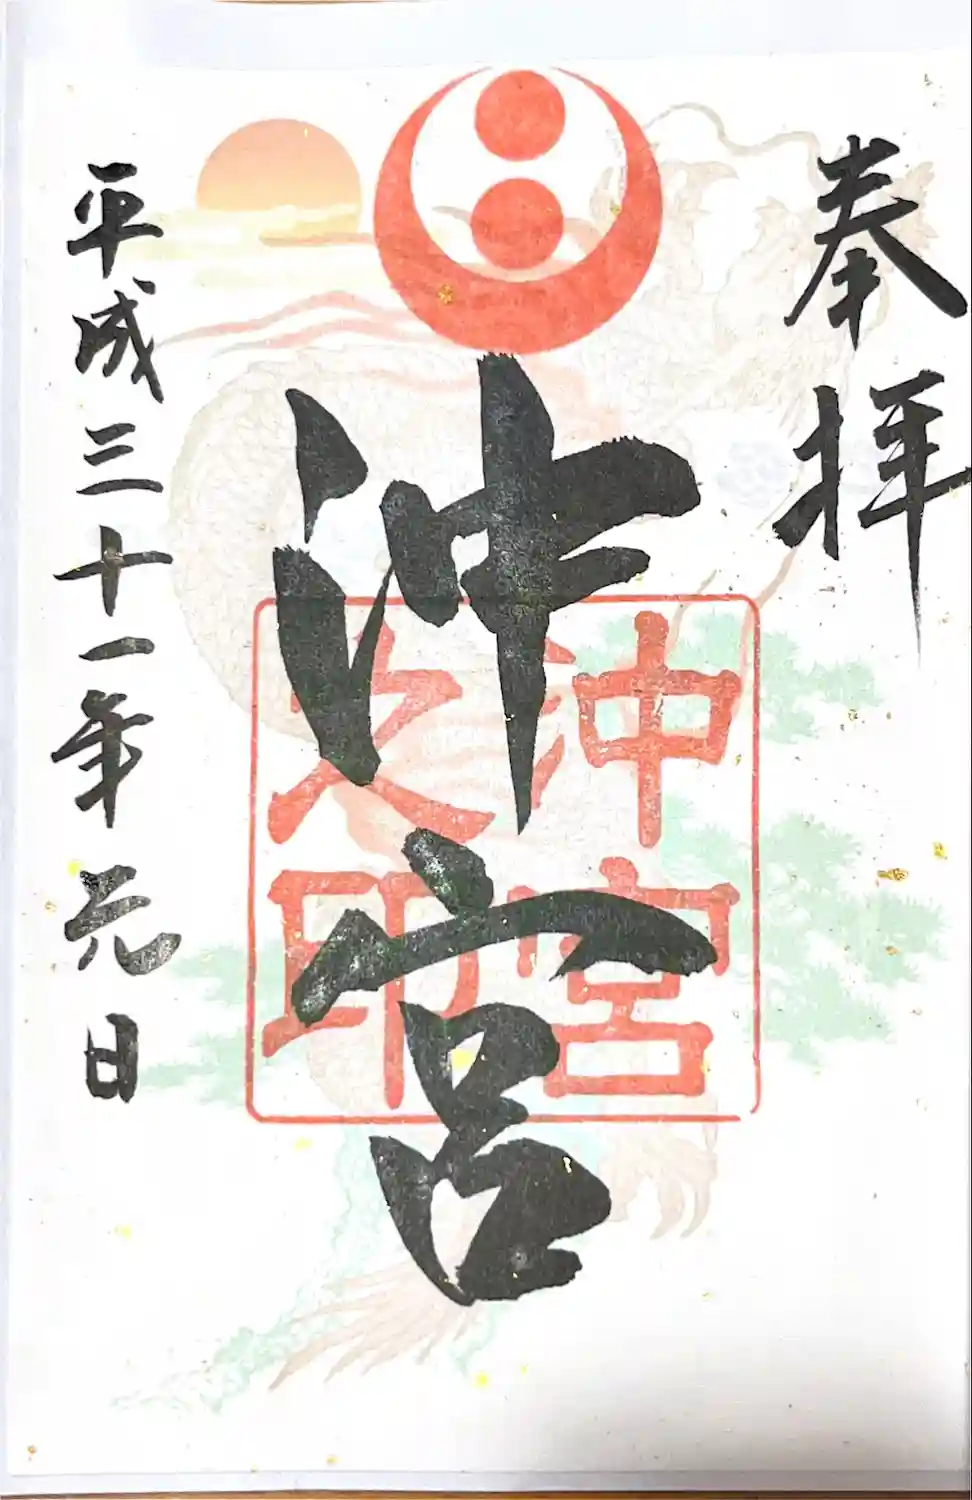 奉拝
沖宮
沖宮
之印
平成三十一年元日